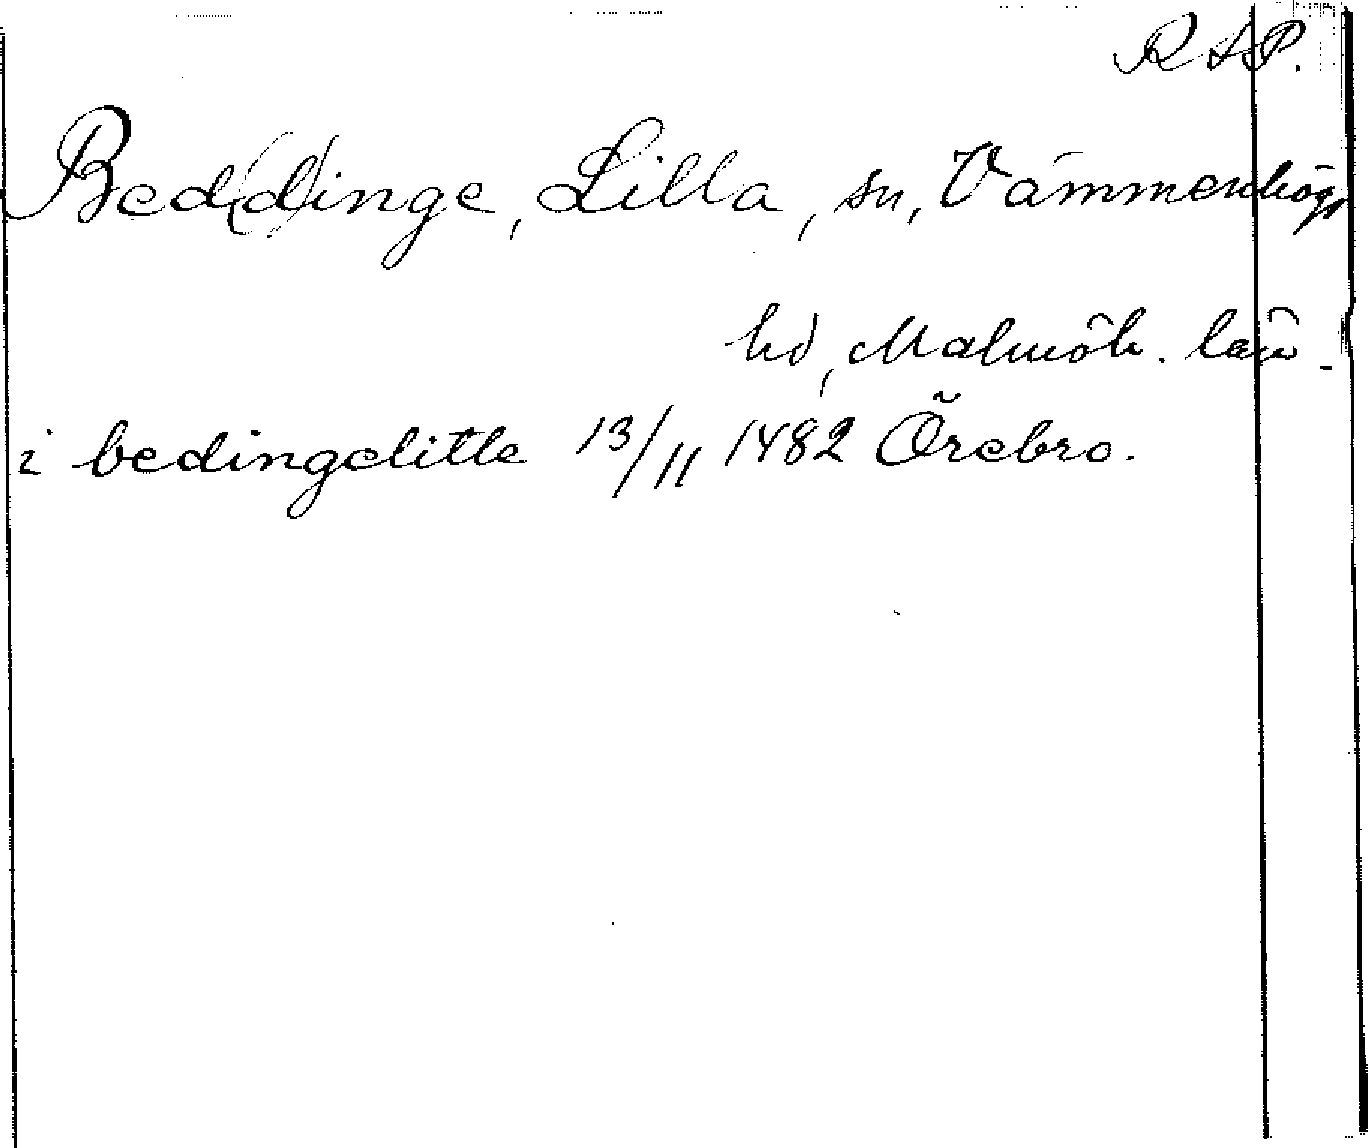 R S P.
Bed(d)inge, Lilla, sn, Vämmenhögs
hd, Malmöh. län.
i bedingelitle 13/11 1482 Örebro.